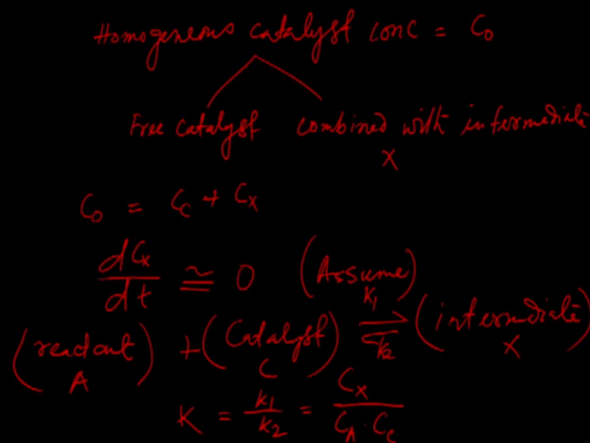 Homogeneous catalyst conc = C₀
Free catalyst combined with intermediate
X
C₀ = C_C + C_X
dC_X/dt ≅ 0 (Assume)
(reactant) + (Catalyst) k₁ ⇌ k₂ (intermediate)
A C X
K = k₁/k₂ = C_X/(C_A · C_C)